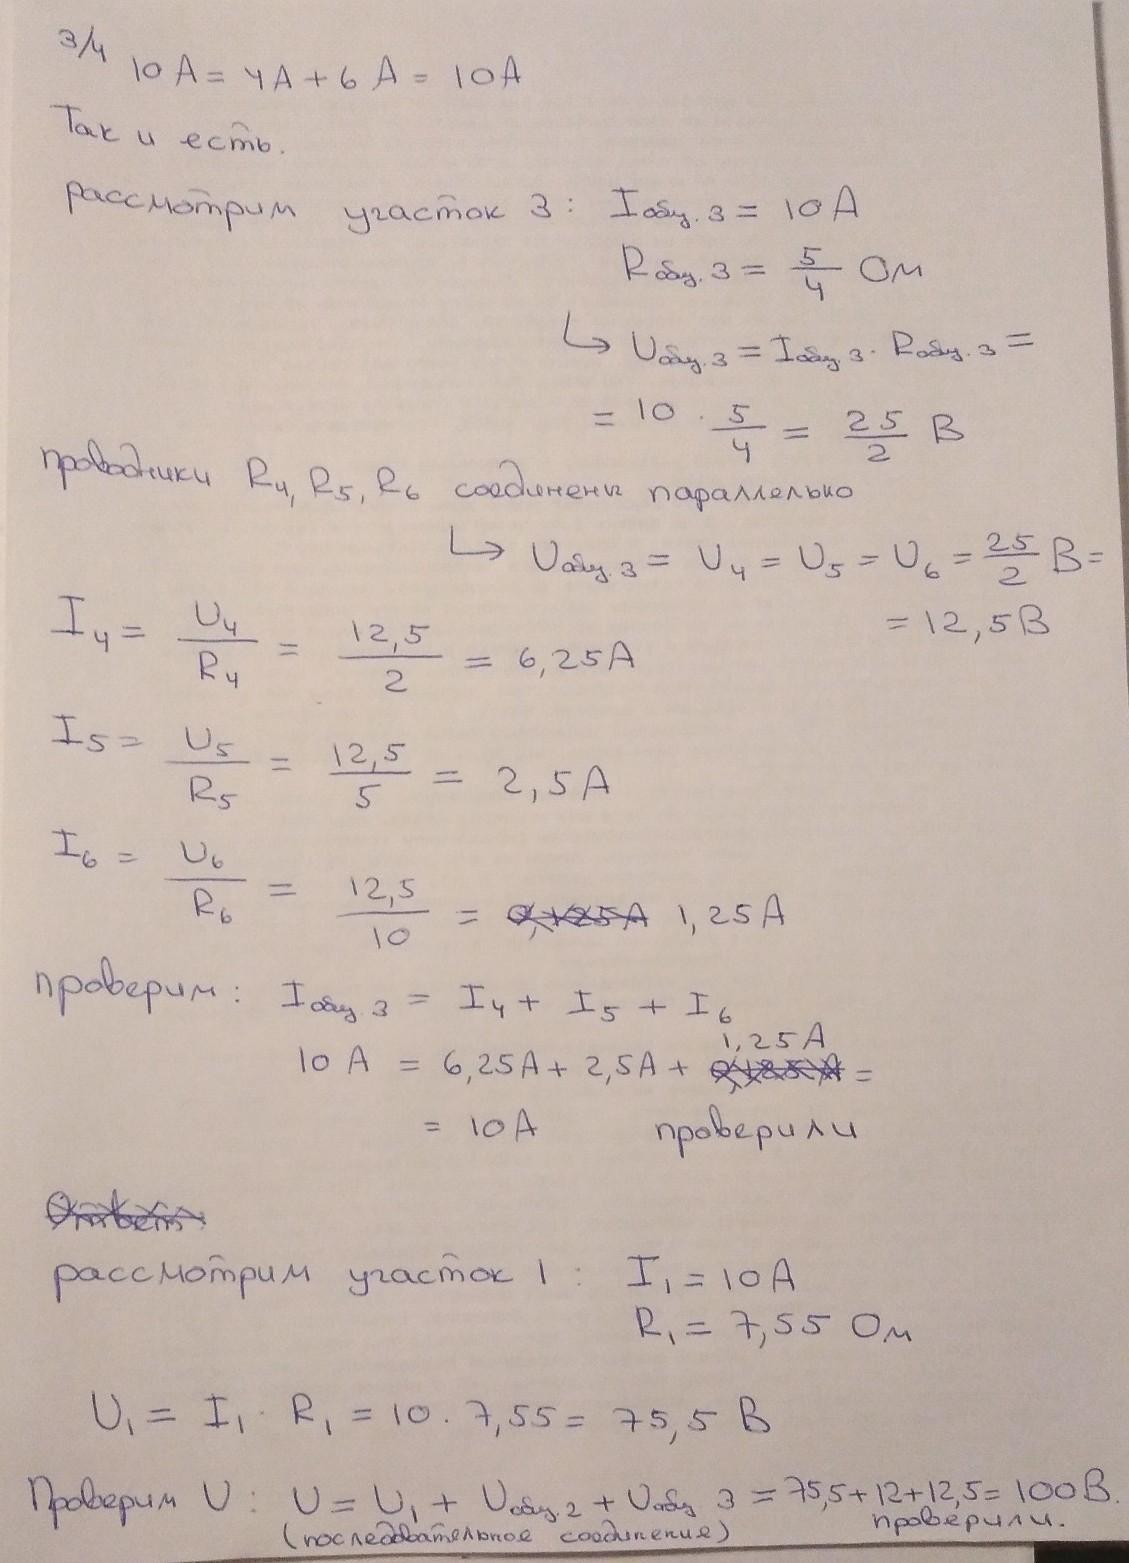 3/4
10 А = 4А + 6 А = 10А
Так и есть.
рассмотрим участок 3: Iобщ.3 = 10А
Rобщ.3 = 5/4 Ом
↳ Uобщ.3 = Iобщ.3 · Rобщ.3 =
= 10 · 5/4 = 25/2 В
проводники R4, R5, R6 соединены параллельно
↳ Uобщ.3 = U4 = U5 = U6 = 25/2 В =
= 12,5В
I4 = U4/R4 = 12,5/2 = 6,25А
I5 = U5/R5 = 12,5/5 = 2,5А
I6 = U6/R6 = 12,5/10 = 1,25А
проверим: Iобщ.3 = I4 + I5 + I6
1,25А
10 А = 6,25А + 2,5А + =
= 10А проверили
Ответ:
рассмотрим участок 1: I1 = 10А
R1 = 7,55 Ом
U1 = I1 · R1 = 10 · 7,55 = 75,5 В
Проверим U: U = U1 + Uобщ.2 + Uобщ 3 = 75,5+12+12,5 = 100В.
(последовательное соединение) проверили.